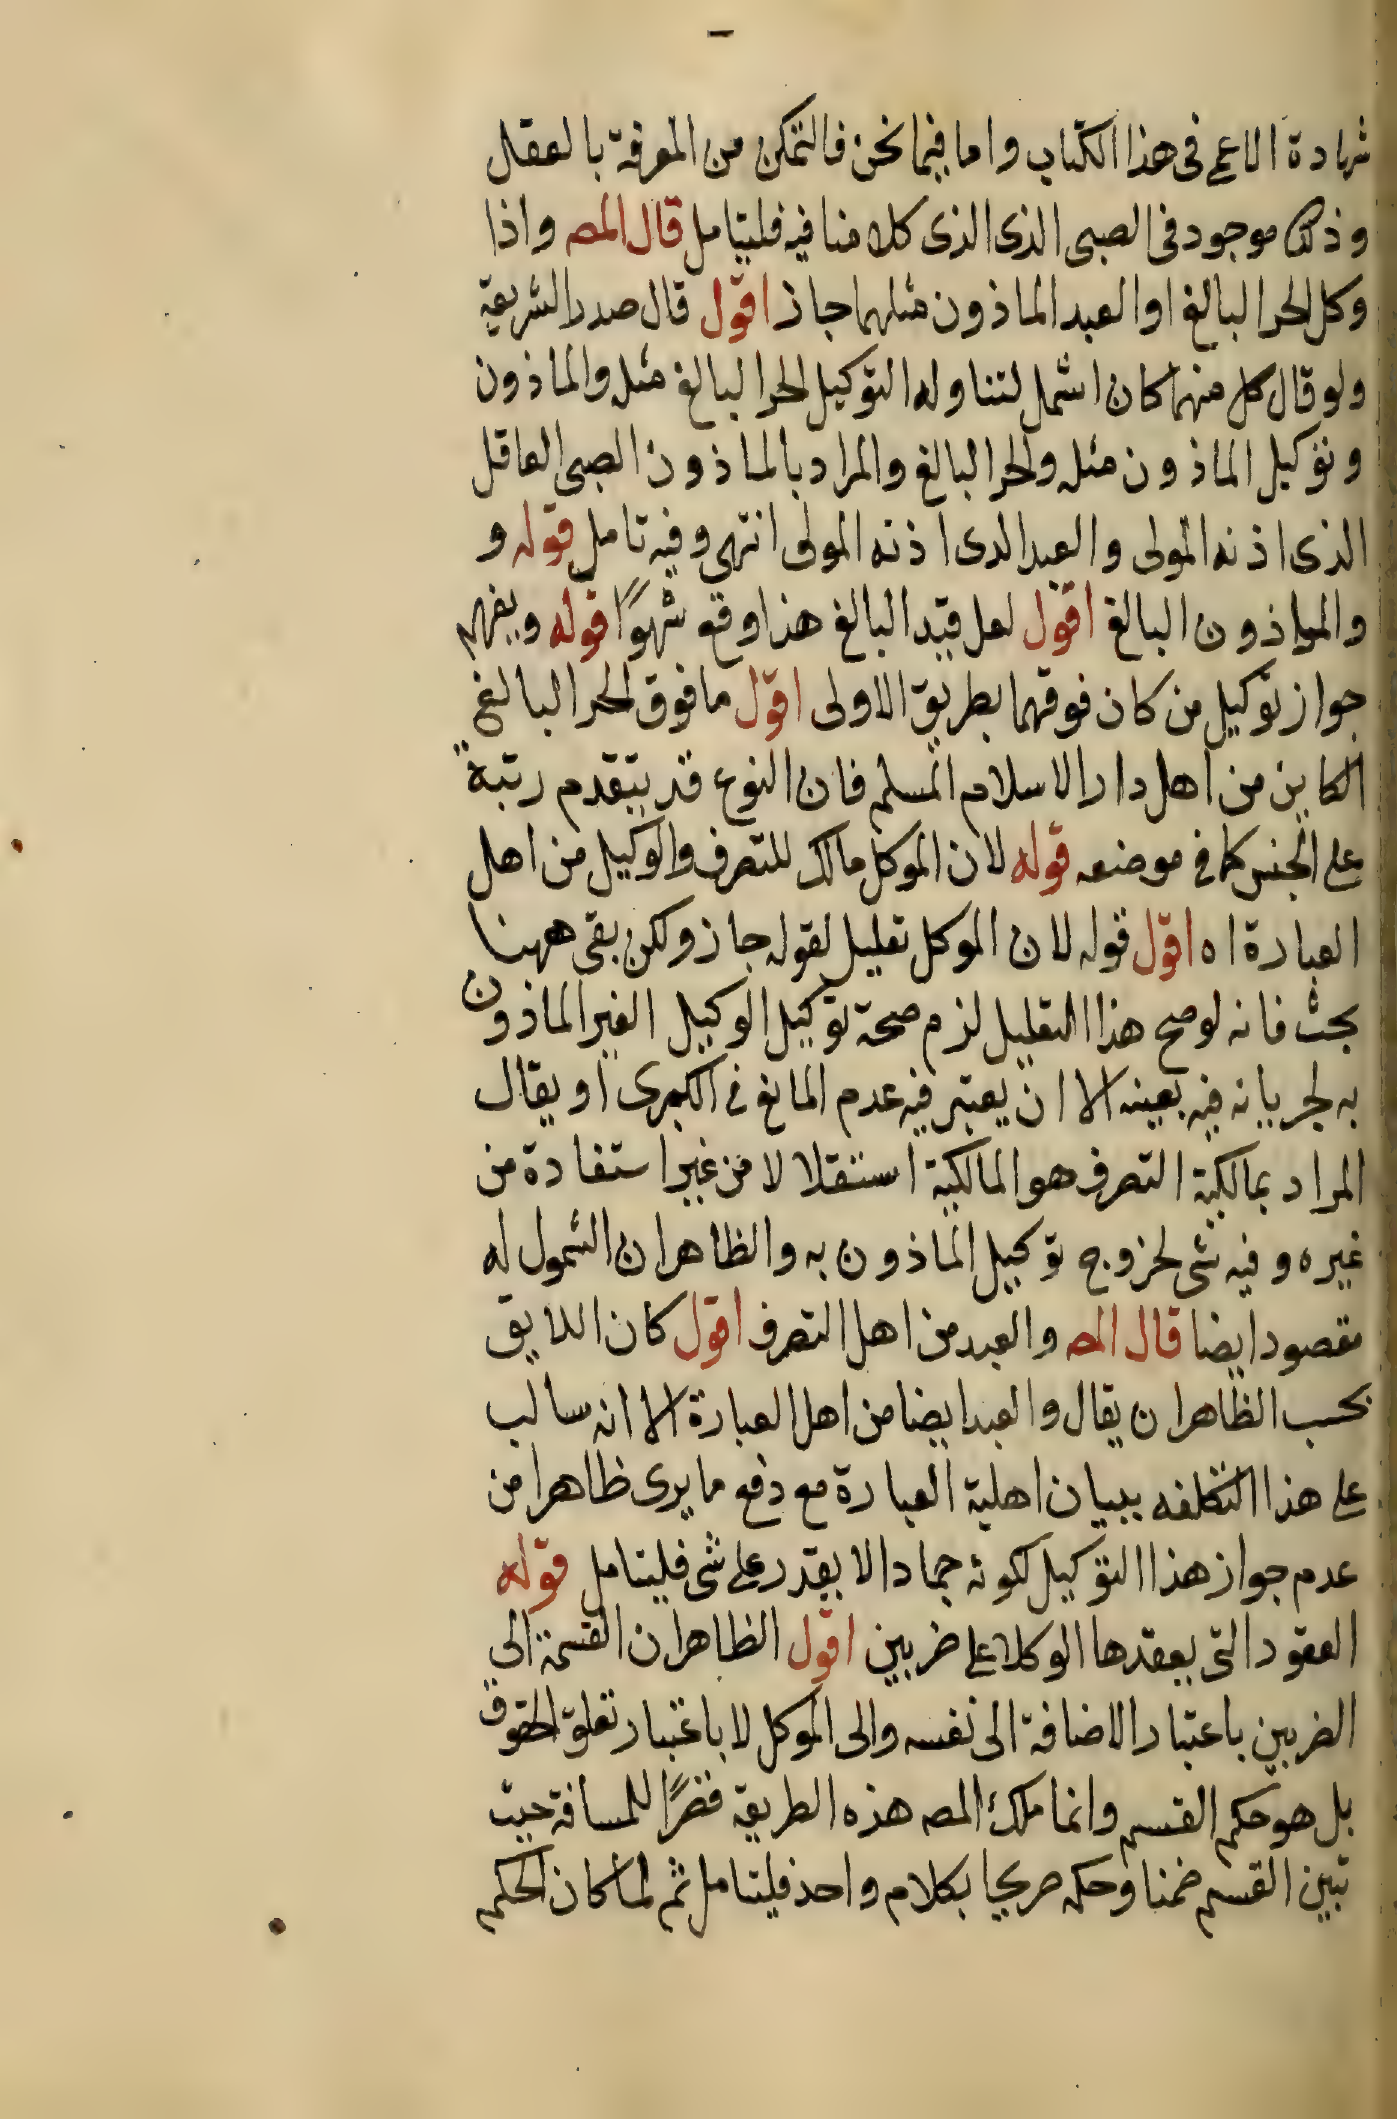 شهادة الاعمى فى هذا الكتاب واما فيما نحن فالتمكن من المعرفة بالعقل
وذلك موجود فى الصبى الذى الذى كلامنا فيه فليتامل قال المص واذا
وكل الحر البالغ او العبد الماذون مثلهما جاز اقول قال صدر الشريعة
ولو قال كل منهما كان اشمل لتناوله التوكيل الحر البالغ مثله والماذون
وتوكيل الماذون مثله والحر البالغ والمراد بالماذون الصبى العاقل
الذى اذنه المولى والعبد الذى اذنه المولى انتهى وفيه تامل قوله و
والماذون البالغ اقول لعل قيد البالغ هذا وقع سهوًا قوله ويفهم
جواز توكيل من كان فوقهما بطريق الاولى اقول ما فوق الحر البالغ
الكاين من اهل دار الاسلام المسلم فان النوع قد يتقدم رتبة
على الجنس كما فى موضعه قوله لان الموكل مالك للتصرف والوكيل من اهل
العبارة اه اقول قوله لان الموكل تعليل لقوله جاز ولكن بقى ههنا
بحث فانه لو صح هذا التعليل لزم صحة توكيل الوكيل الغير الماذون
به لجريانه فيه بعينه الا ان يعتبر فيه عدم المانع فى الكبرى او يقال
المراد بمالكية التصرف هو المالكية استقلالا من غير استفادة من
غيره وفيه شى لخروج توكيل الماذون به والظاهر ان الشمول له
مقصود ايضا قال المص والعبد من اهل التصرف اقول كان اللايق
بحسب الظاهر ان يقال والعبد ايضا من اهل العبارة الا انه سالب
على هذا التكلفه ببيان اهلية العبارة مع دفع ما يرى ظاهرا من
عدم جواز هذا التوكيل لكونه جمادا لا يقدر على شى فليتامل قوله
العقود التى يعقدها الوكلا على ضربين اقول الظاهر ان القسمة الى
الضربين باعتبار الاضافة الى نفسه والى الموكل لا باعتبار تعلق الحقوق
بل هو حكم القسم وانما ملك المص هذه الطريقة قصرًا للمسافة حيث
تبين القسم ضمنا وحكمه صريحا بكلام واحد فليتامل ثم لما كان الحكم